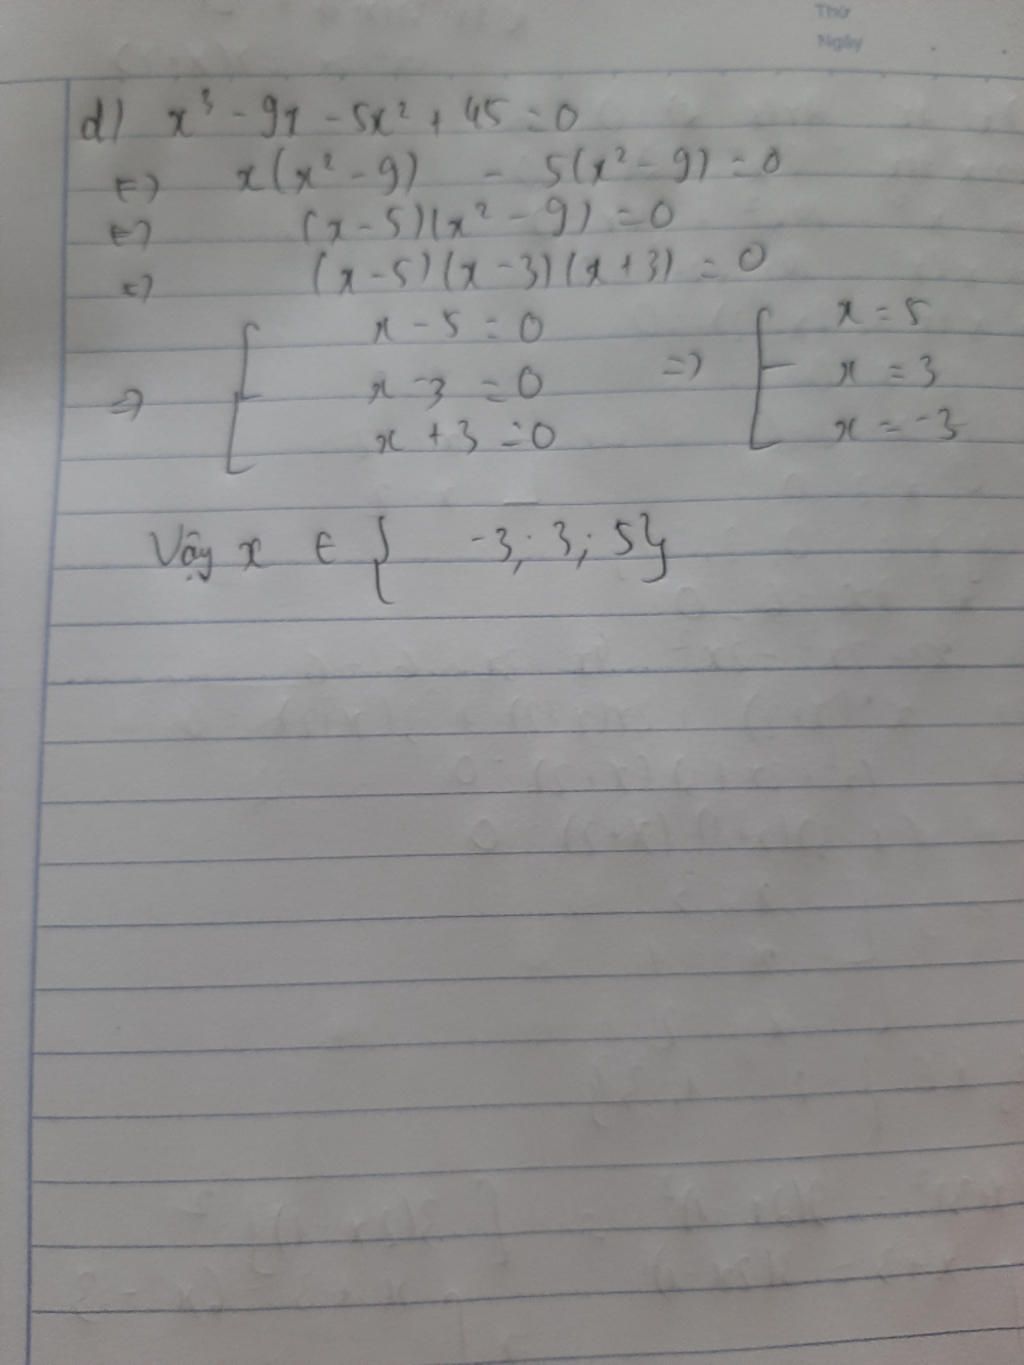 Thứ
Ngày
d) x³ - 9x - 5x² + 45 = 0
<=> x(x² - 9) - 5(x² - 9) = 0
<=> (x - 5)(x² - 9) = 0
<=> (x - 5)(x - 3)(x + 3) = 0
x - 5 = 0 x = 5
=> [ x - 3 = 0 => [ x = 3
x + 3 = 0 x = -3
Vậy x ∈ { -3; 3; 5}